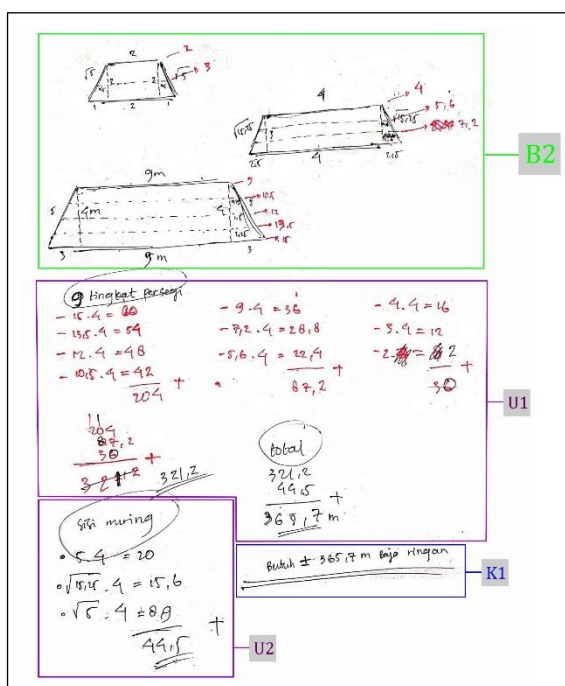 2
2
√5
2
2
√5
3
1
2
1
4
4
√15,25
√15,25
5,6
7,2
2,5
4
2,5
B2
9m
9
5
4m
4
10,5
12
13,5
15
3
9m
3
9 tingkat persegi
- 15.4 = 60
- 13,5.4 = 54
- 12.4 = 48
- 10,5.4 = 42
+
204
- 9.4 = 36
- 7,2.4 = 28,8
- 5,6.4 = 22,4
+
87,2
- 4.4 = 16
- 3.4 = 12
+
30
204
87,2
30
+
321,2
total
321,2
44,5
+
365,7 m
U1
sisi miring
• 5.4 = 20
• √15,25 . 4 = 15,6
• √5 . 4 = 8,9
+
44,5
U2
Butuh ± 365,7 m Baja ringan
K1